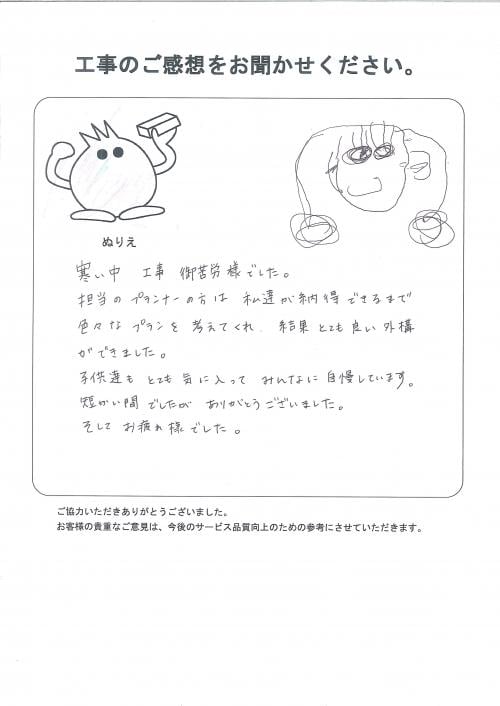 工事のご感想をお聞かせください。
ぬりえ
寒い中 工事 御苦労様でした。
担当のプランナーの方は 私達が納得できるまで
色々なプランを 考えてくれ、結果とても良い外構
ができました。
子供達も とても 気に入って みんなに自慢しています。
短かい間 でしたが ありがとうございました。
そして お疲れ様でした。
ご協力いただきありがとうございました。
お客様の貴重なご意見は、今後のサービス品質向上のための参考にさせていただきます。